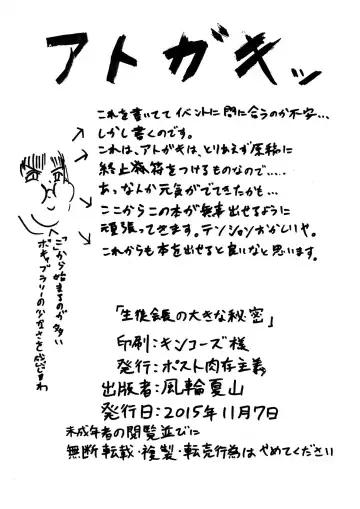 アトガキッ
これを書いててイベントに間に合うのか不安…
しかし書くのです。
これは、アトガキは、とりあえず原稿に
終止符をつけるものなので……
あっなんか元気がでてきたかも…
ここからこの本が無事出せるように
頑張ってきます。テンションおかしいや。
これからも本を出せると良いなと思います。
「こ」から始まるのが多い
ボキャブラリーの少なさを感じますわ
「生徒会長の大きな秘密」
印刷:キンコーズ様
発行:ポスト肉存主義
出版者:風輪夏山
発行日:2015年11月7日
未成年者の閲覧並びに
無断転載・複製・転売行為はやめてください